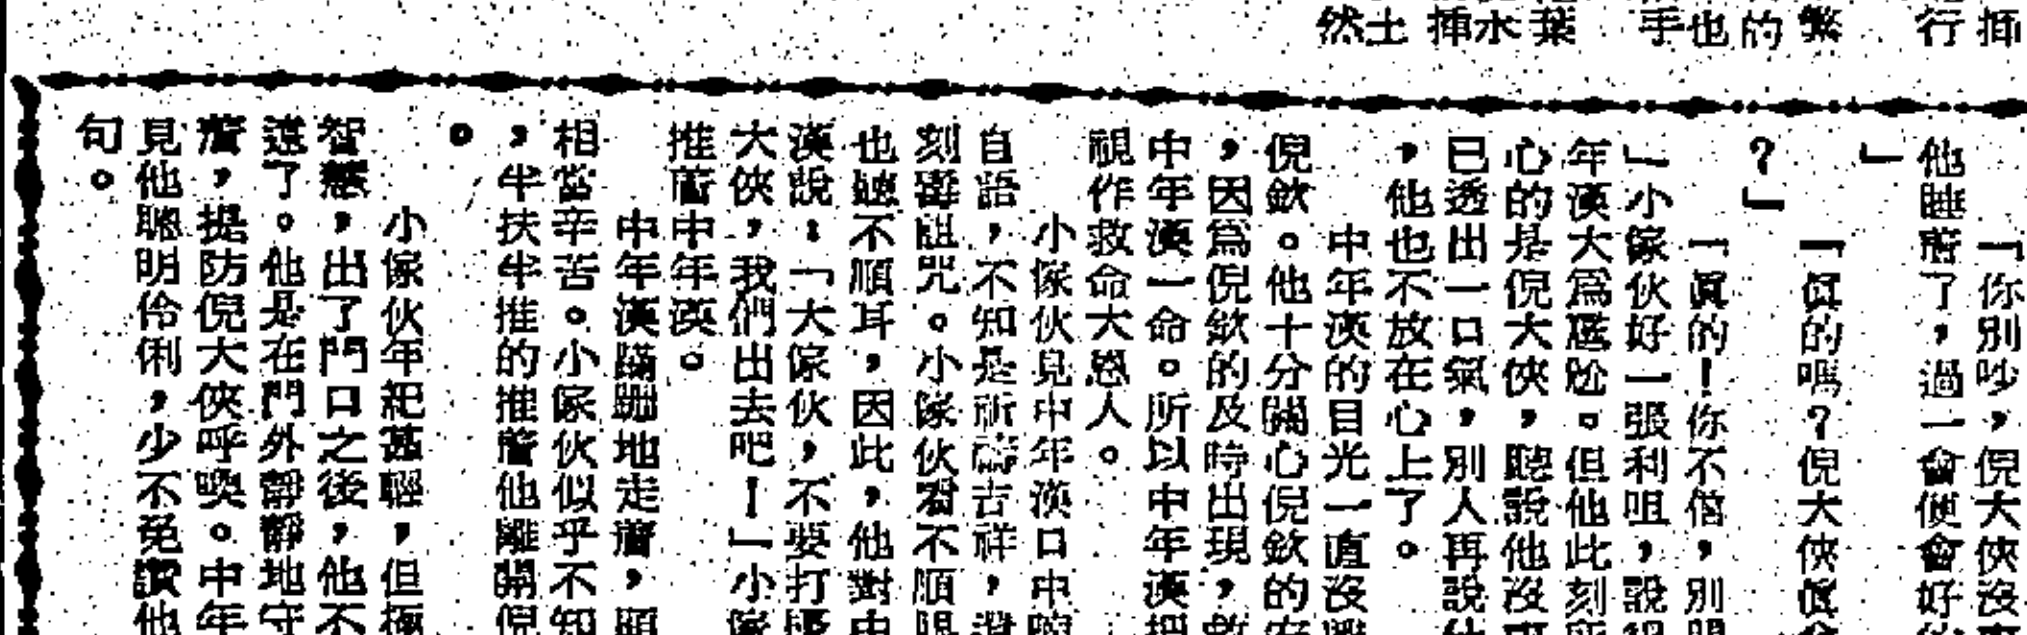 揷
行
繁
的
也
手
葉
水
揷
土
然
「你別吵，倪大俠沒
他睡著了，過一會便會好
」
「眞的嗎？倪大俠眞
？」
「眞的！你不信，別
」小傢伙好一張利咀，說
年漢大爲尷尬。但他此刻
心的是倪大俠，聽說他沒
已透出一口氣，別人再說
，他也不放在心上了。
中年漢的目光一直沒
倪欽。他十分關心倪欽的
，因爲倪欽的及時出現，
中年漢一命。所以中年漢
視作救命大恩人。
小傢伙見中年漢口中
自語，不知是祈禱吉祥，
刻毒詛咒。小傢伙看不順眼
也聽不順耳，因此，他對中
漢說：「大傢伙，不要打擾
大俠，我們出去吧！」小傢
推著中年漢。
中年漢蹣跚地走著，
相當辛苦。小傢伙似乎不知
，半扶半推的推著他離開倪
。
小傢伙年紀甚輕，但極
智慧，出了門口之後，他不
遠了。他是在門外靜靜地守
著，提防倪大俠呼喚。中年
見他聰明伶俐，少不免讚他
句。